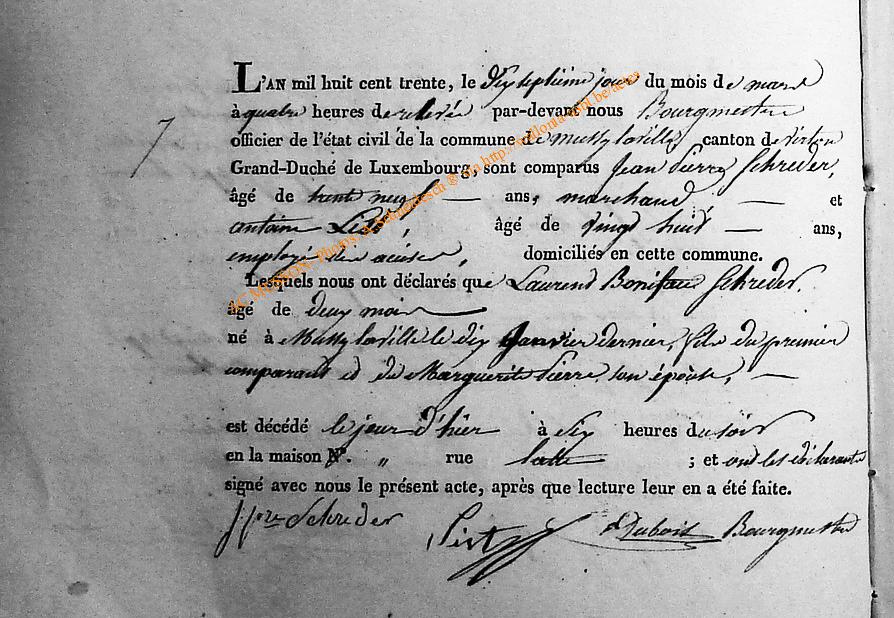 L'AN mil huit cent trente, le dix septieme jour du mois de mars
à quatre heures de relevée par-devant nous Bourgmestre
officier de l'état civil de la commune de mussy laville, canton de virton
7
Grand-Duché de Luxembourg, sont comparus Jean Pierre Schreder,
âgé de trente neuf — ans, marchand, — et
antoine, âgé de vingt huit — ans,
employé domiciliés en cette commune.
Lesquels nous ont déclarés que Laurend Boniface Schreder,
âgé de deux mois
né à Mussy laville le dix Janvier dernier, fils du premier
comparant et de Marguerite Pierre son épouse, —
est décédé le jour d'hier à six heures du soir
en la maison N°. „ rue ; et ont les déclarants
signé avec nous le présent acte, après que lecture leur en a été faite.
J pre Schreder Dubois Bourgmestre